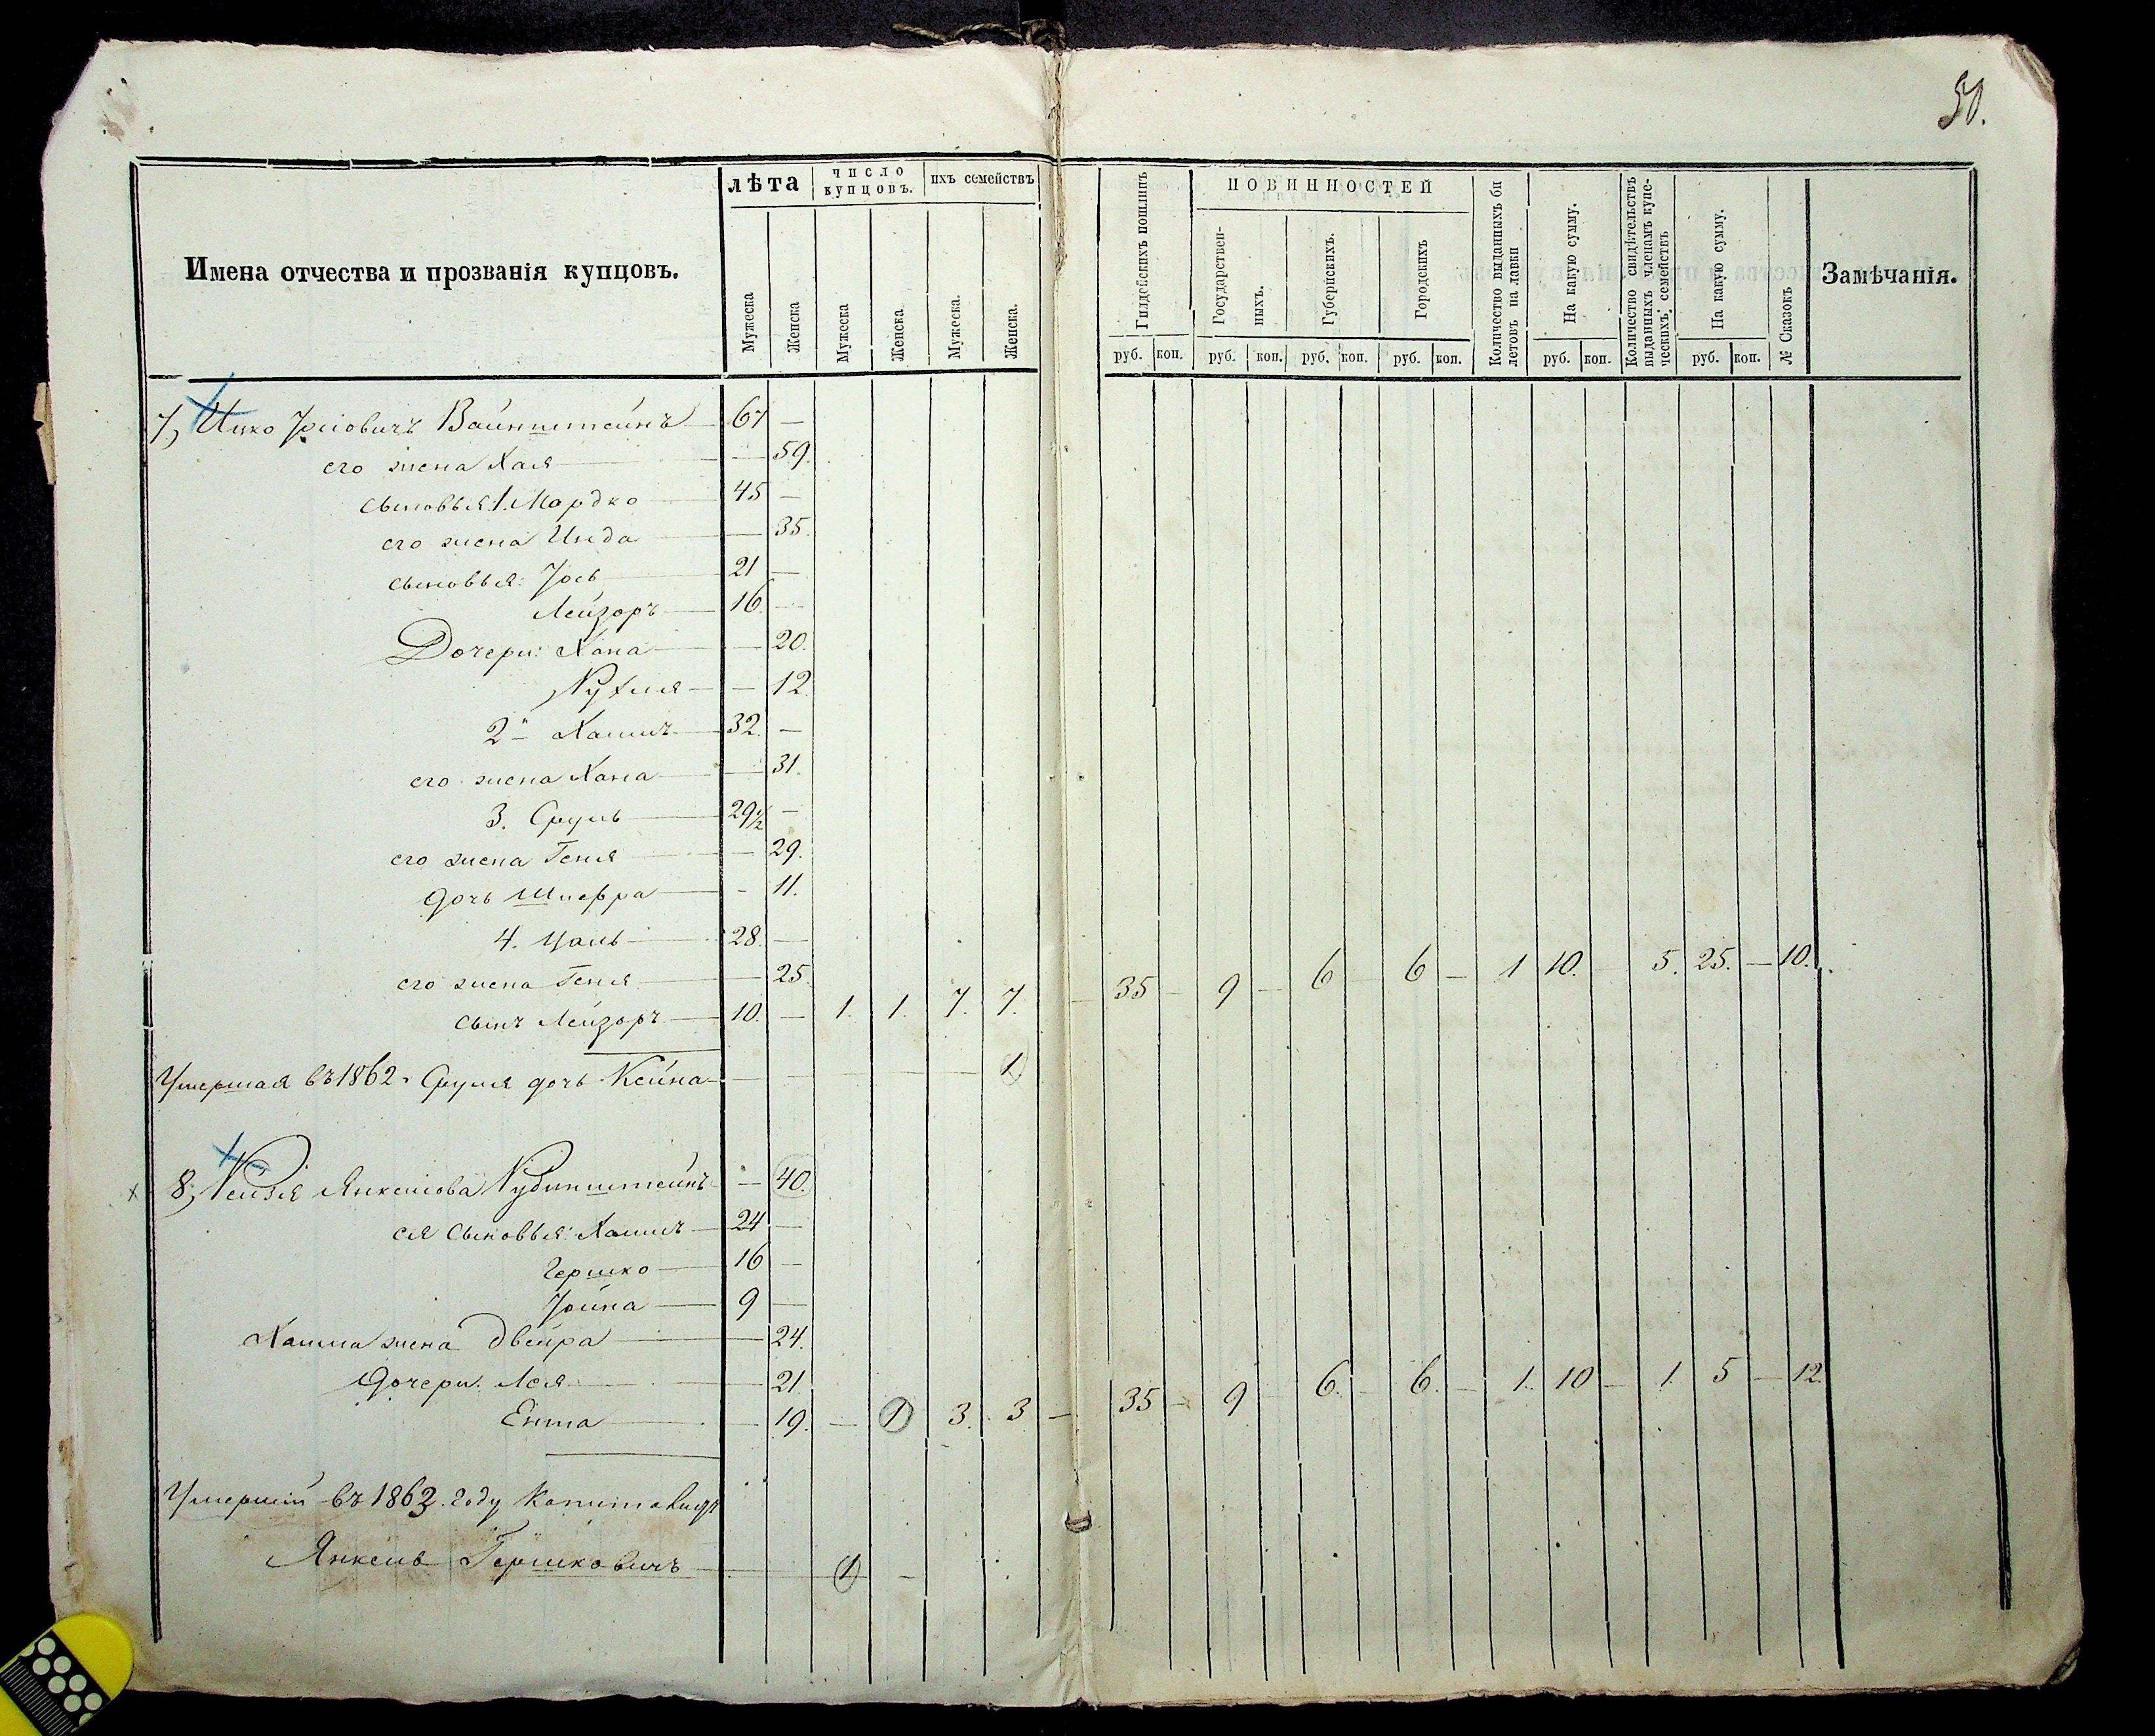 50.
Имена отчества и прозванія купцовъ.
лѣта
число купцовъ.
ихъ семействъ
Мужеска
Женска
Мужеска
Женска
Мужеска.
Женска.
Гилдейскихъ пошлинъ
повинностей
Государствен-
ныхъ.
Губернскихъ.
Городскихъ
Количество выданныхъ би
летовъ на лавки
На какую сумму.
Количество свидѣтельствъ
выданныхъ членамъ купе-
ческихъ семействъ
На какую сумму.
№ Сказокъ
Замѣчанія.
руб. коп. руб. коп. руб. коп. руб. коп. руб. коп. руб. коп.
7, Ицко Вайнштейнъ 67 —
его жена Хая — 59.
сыновья: 1. Мордко 45 —
его жена — 35.
сыновья: Іось 21 —
Лейзоръ 16. —
Дочери: Хана — 20.
Рухля — 12.
2й Хаимъ 32. —
его жена Хана — 31.
3. Сруль 29½ —
его жена Геня — 29.
дочь Шифра — 11.
4. 28. —
его жена Геня — 25.
сынъ Лейзоръ 10. — 1. 1. 7. 7. — 35 — 9 — 6 — 6 — 1 10. — 5. 25. — 10.
Умершая въ 1862 г. Сруля дочь Кейна — 1
8, Рейзя Янкелева Рубинштейнъ — 40.
ея сыновья: Хаимъ 24 —
Гершко 16 —
Іойна 9 —
Хаима жена Двейра — 24.
Дочери: Лея — 21.
Ента — 19. — 1 3. 3 — 35 — 9 — 6. — 6. — 1. 10 — 1. 5 — 12.
Умершій въ 1863 году
Янкель Гершковичъ 1 —